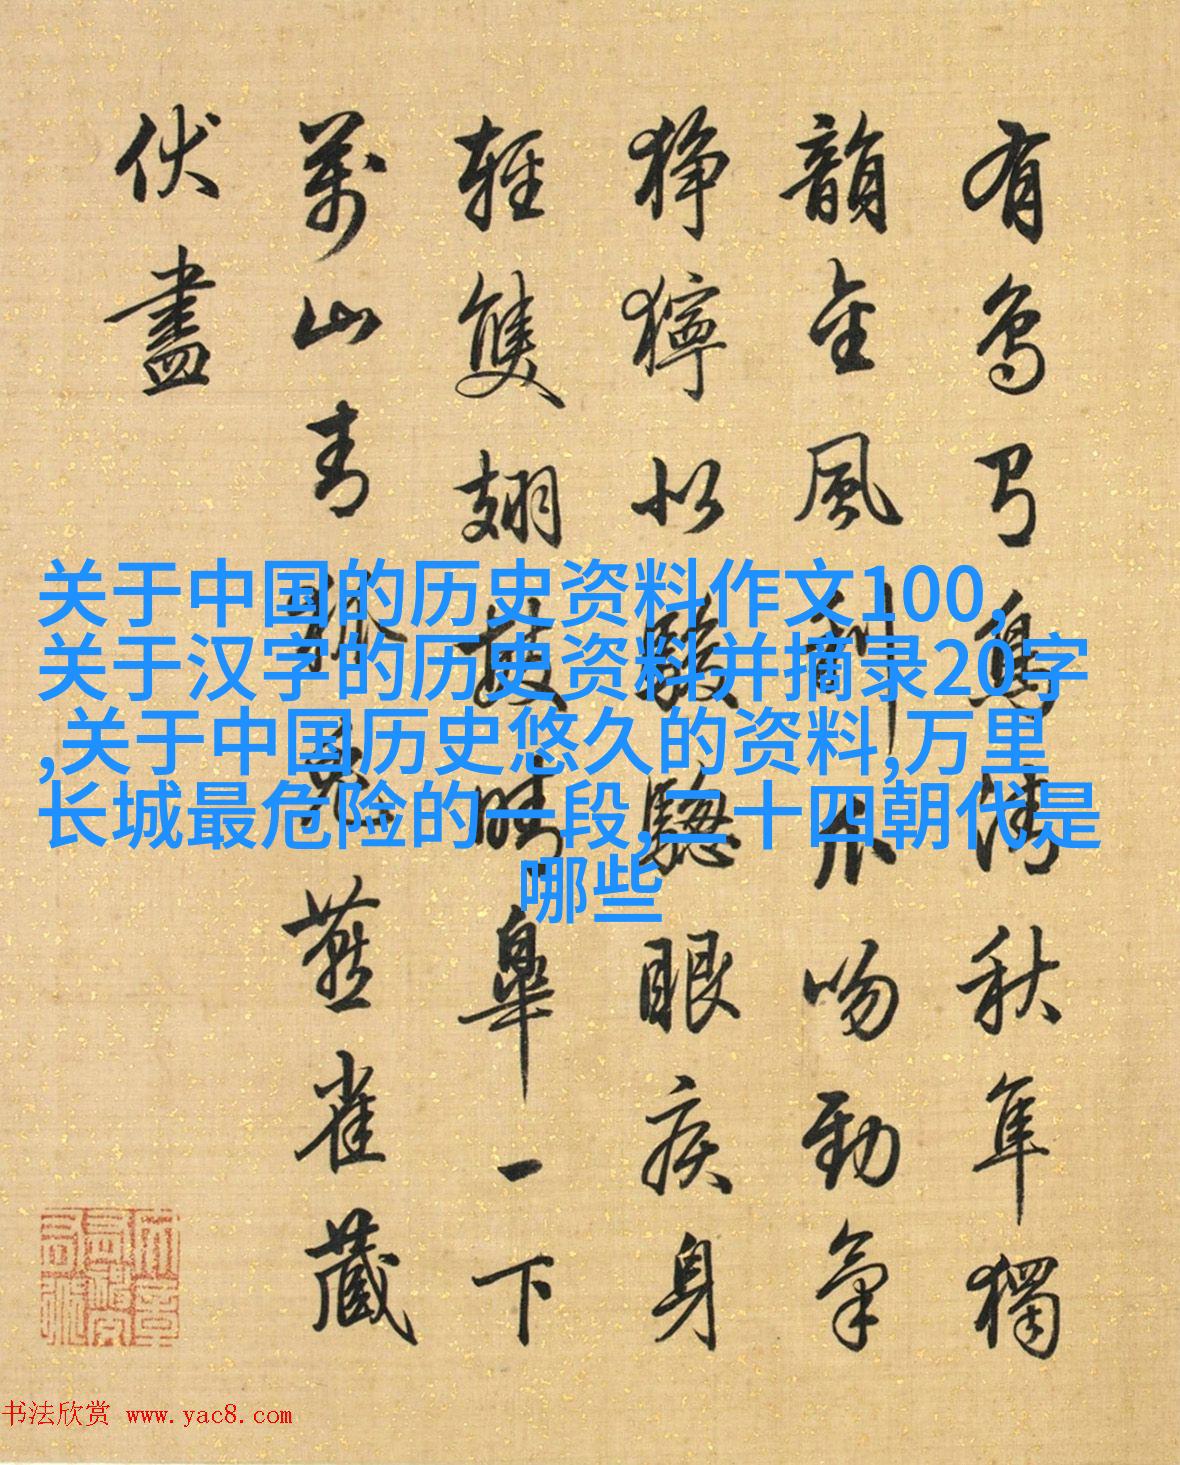 有鳥鳥清秋隼獨
韻金風吻勁氣
猙獰似駿驄眼疾身
輕雙翅晴皋一下
萬山青狐兔燕雀藏
伏盡
关于中国的历史资料作文100,
关于汉字的历史资料并摘录20字
,关于中国历史悠久的资料,万里
长城最危险的一段,二十四朝代是
哪些
书法欣赏 www.yac8.com